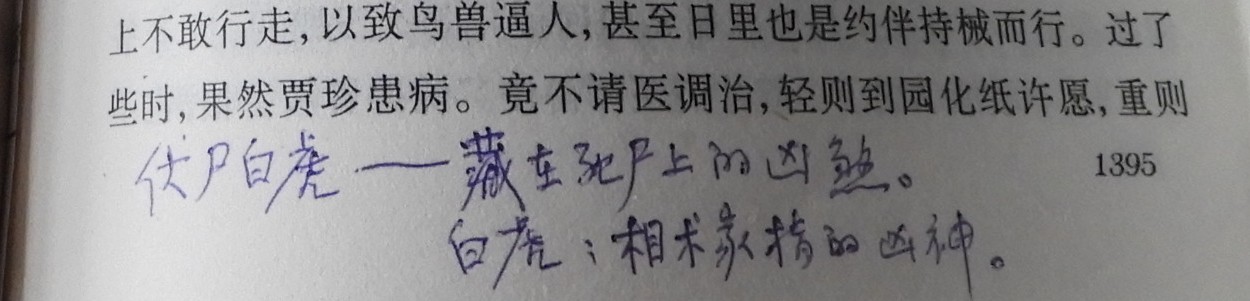 上不敢行走,以致鸟兽逼人,甚至日里也是约伴持械而行。过了
些时,果然贾珍患病。竟不请医调治,轻则到园化纸许愿,重则
伏尸白虎——藏在死尸上的凶煞。
1395
白虎:相术家指的凶神。